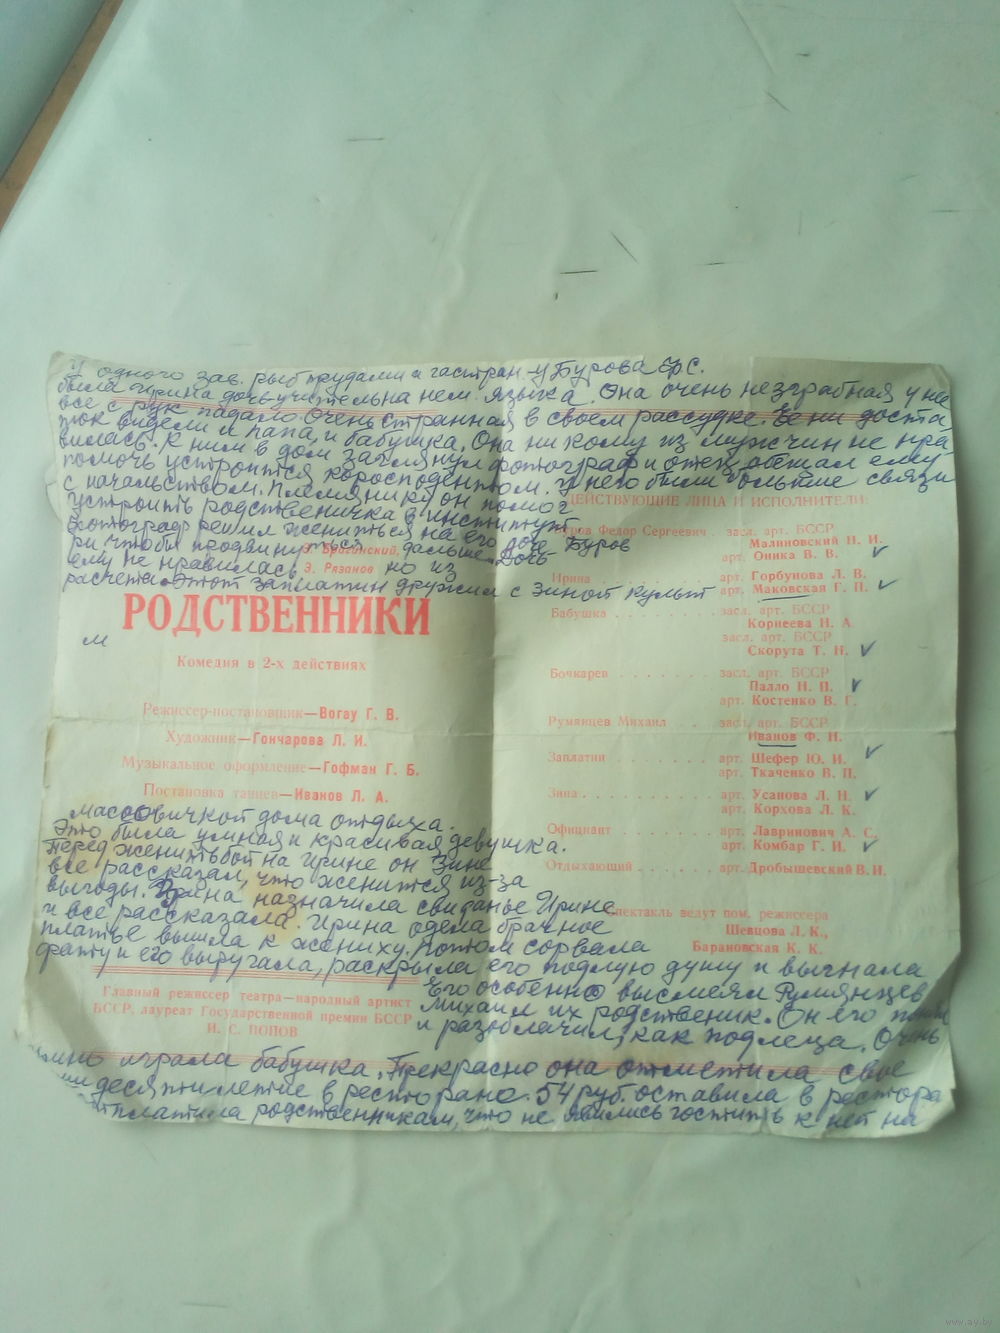 У одного зав. рыб трудами и гастран. у Бурова Ф.С.
была Ирина дочь-учительна нем. языка. Она очень незграбная у не
все с рук падало Очень странная в своем рассудке. Её ни доста
видели и папа, и бабушка. Она ни кому из мужчин не нра
вилась. К ним в дом заглянул фотограф и отец обещал ему
помочь устроится коросподентом. У него были большие связи
с начальством. Племянику он помог
устроить родственичка в институт
Фотограф решил жениться на его доче-
ри чтобы продвинуться дальше. Дочь Буров
ему не нравилась но из
расчета. Этот заплатин дружил с Зиной культ
Э. Брагинский,
Э. Рязанов
РОДСТВЕННИКИ
м
Комедия в 2-х действиях
Режиссер-постановщик—Вогау Г. В.
Художник—Гончарова Л. И.
Музыкальное оформление—Гофман Г. Б.
Постановка танцев—Иванов Л. А.
массовичкой дома отдыха.
Это была умная и красивая девушка.
Перед женитьбой на Ирине он Зине
все рассказал, что женится из-за
выгоды. Зина назначила свиданье Ирине
и все рассказала. Ирина одела брачное
платье вышла к жениху. Потом сорвала
фату и его выругала, раскрыла его подлую душу и выгнала
Его особенно высмеял Румянцев
Михаил их родственик. Он его
и разоблачил, как подлеца. Очень
играла бабушка. Прекрасно она отметила свое
десятилетие в ресторано. 54 руб. оставила в рестора
родственникам, что не явились гостить к ней на
Главный режиссер театра—народный артист
БССР, лауреат Государственной премии БССР
И. С. ПОПОВ
ДЕЙСТВУЮЩИЕ ЛИЦА И ИСПОЛНИТЕЛИ:
Буров Федор Сергеевич . засл. арт. БССР
Малиновский Н. И.
арт. Оника В. В.
Ирина . . . . . . . . . арт. Горбунова Л. В.
арт. Маковская Г. П.
Бабушка . . . . . . . . засл. арт. БССР
Корнеева Н. А.
засл. арт. БССР
Скорута Т. Н.
Бочкарев . . . . . . . засл. арт. БССР
Палло Н. П.
арт. Костенко В. Г.
Румянцев Михаил . . . засл. арт. БССР
Иванов Ф. Н.
Заплатин . . . . . . . арт. Шефер Ю. И.
арт. Ткаченко В. П.
Зина . . . . . . . . . арт. Усанова Л. Н.
арт. Корхова Л. К.
Официант . . . . . . . арт. Лавринович А. С.
арт. Комбар Г. И.
Отдыхающий . . . . . . арт. Дробышевский В. И.
Спектакль ведут пом. режиссера
Шевцова Л. К.,
Барановская К. К.
www.ay.by